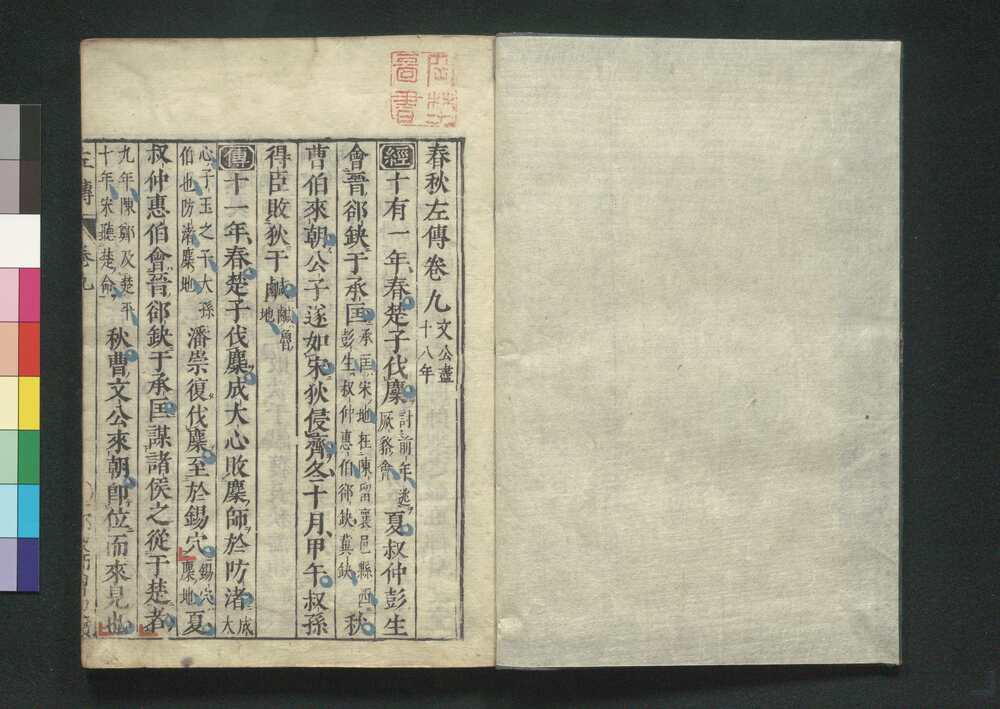 春秋左傳卷九 文公盡
十八年
經十有一年春楚子伐麇 討前年逃
厥貉會 夏叔仲彭生
會晉郤缺于承匡 承匡宋地在陳留襄邑縣西
彭生叔仲惠伯郤缺冀缺 秋
曹伯來朝公子遂如宋狄侵齊冬十月甲午叔孫
得臣敗狄于鹹 鹹魯
地
傳十一年春楚子伐麇成大心敗麇師於防渚 成
大
心子玉之子大孫
伯也防渚麇地 潘崇復伐麇至於錫穴 錫穴
麇地 夏
叔仲惠伯會晉郤缺于承匡謀諸侯之從于楚者
九年陳鄭及楚平
十年宋聽楚命 秋曹文公來朝卽位而來見也
左傳 卷九
圖書